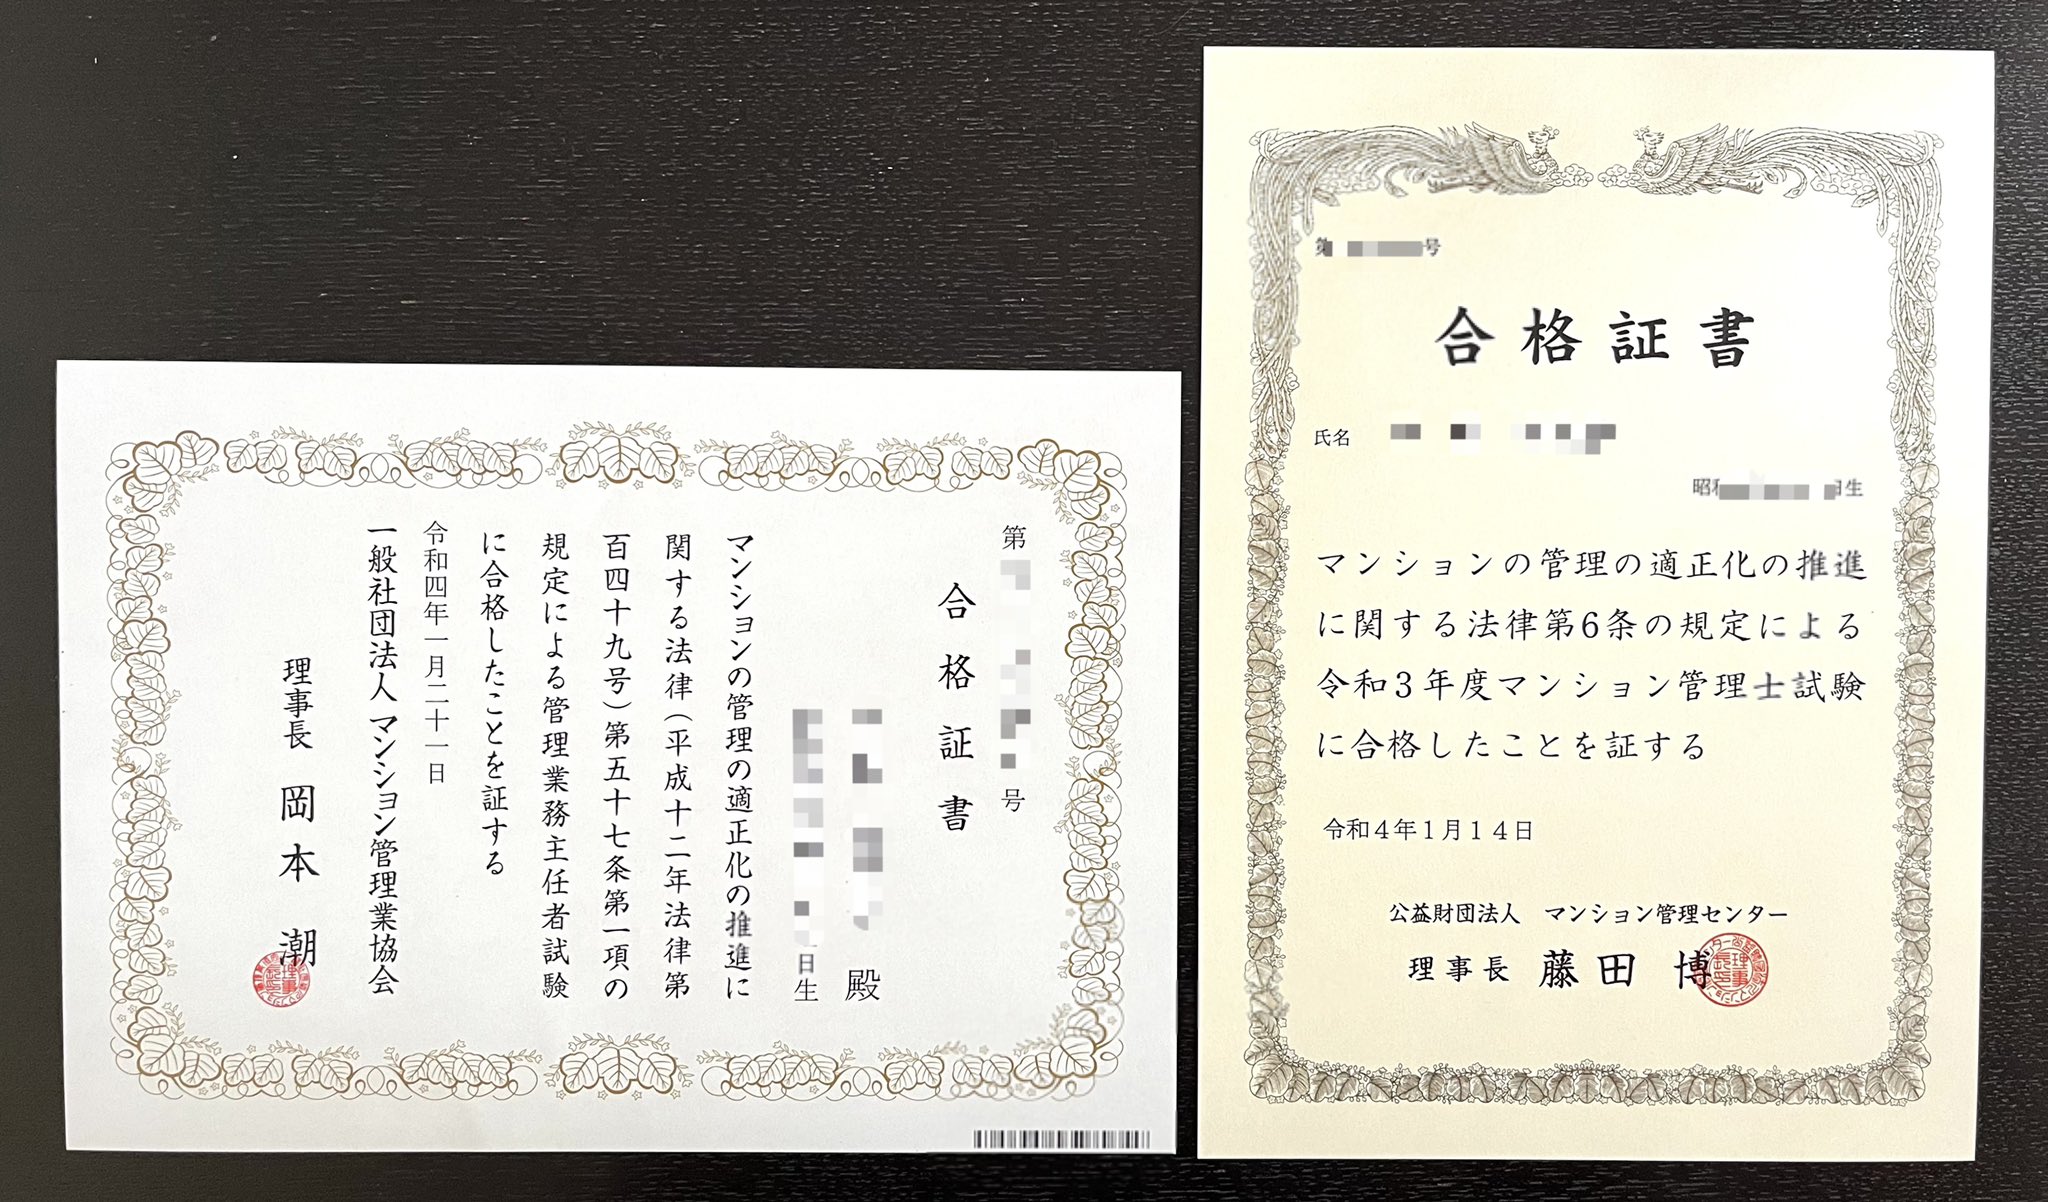 第 号
合格証書
殿
日生
マンションの管理の適正化の推進に
関する法律（平成十二年法律第
百四十九号）第五十七条第一項の
規定による管理業務主任者試験
に合格したことを証する
令和四年一月二十一日
一般社団法人 マンション管理業協会
理事長 岡本 潮
第 号
合格証書
氏名
昭和 日生
マンションの管理の適正化の推進
に関する法律第6条の規定による
令和3年度マンション管理士試験
に合格したことを証する
令和4年1月14日
公益財団法人 マンション管理センター
理事長 藤田 博